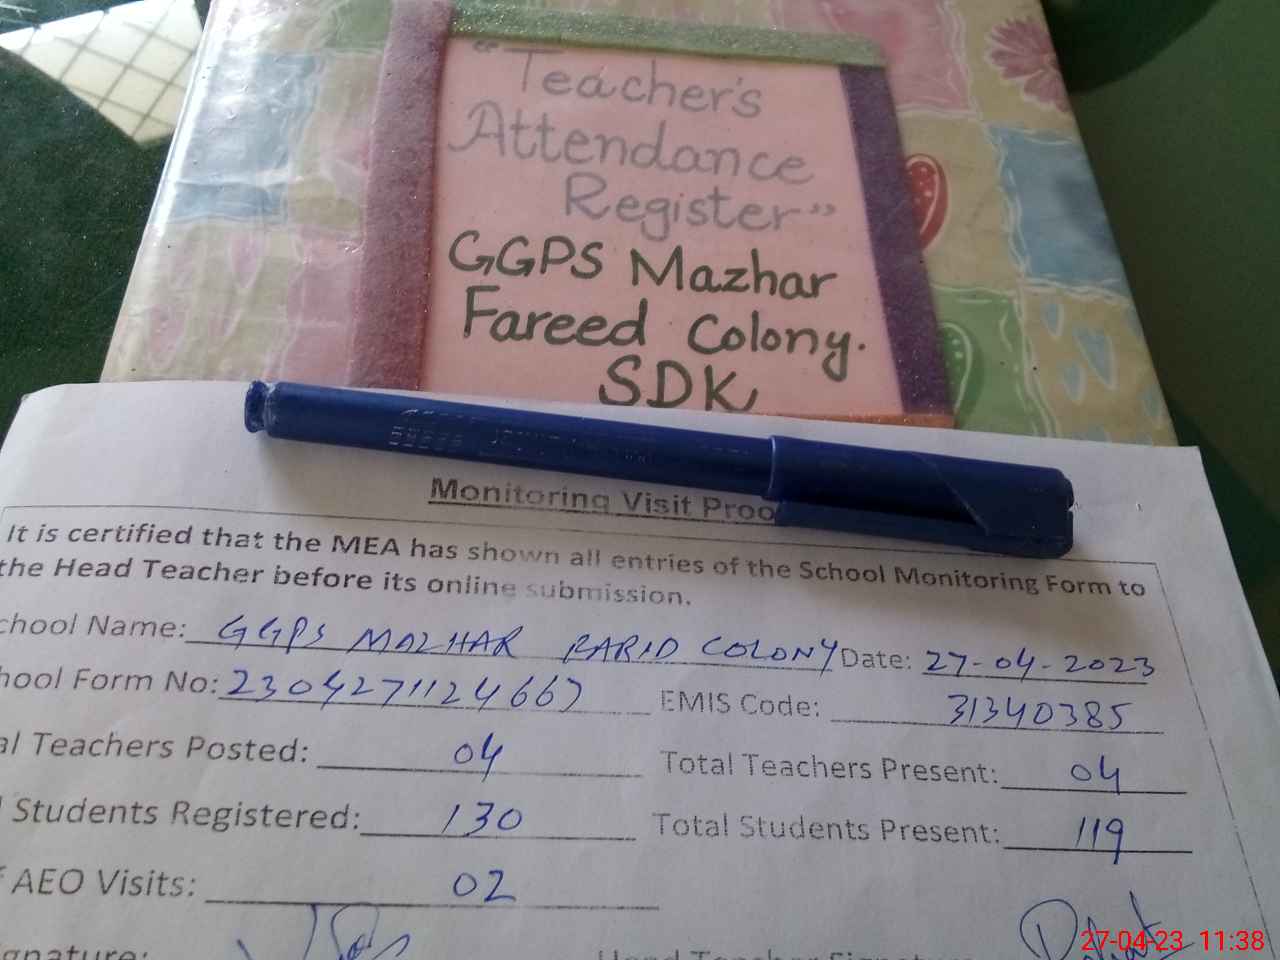 “Teacher's
Attendance
Register”
GGPS Mazhar
Fareed Colony.
SDK
Monitoring Visit Proo
It is certified that the MEA has shown all entries of the School Monitoring Form to
the Head Teacher before its online submission.
chool Name: GGPS MAZHAR FARID COLONY Date: 27-04-2023
hool Form No: 2304271124667 EMIS Code: 31340385
al Teachers Posted: 04 Total Teachers Present: 04
Students Registered: 130 Total Students Present: 119
AEO Visits: 02
gnature: Head Teacher Signature
27-04-23 11:38